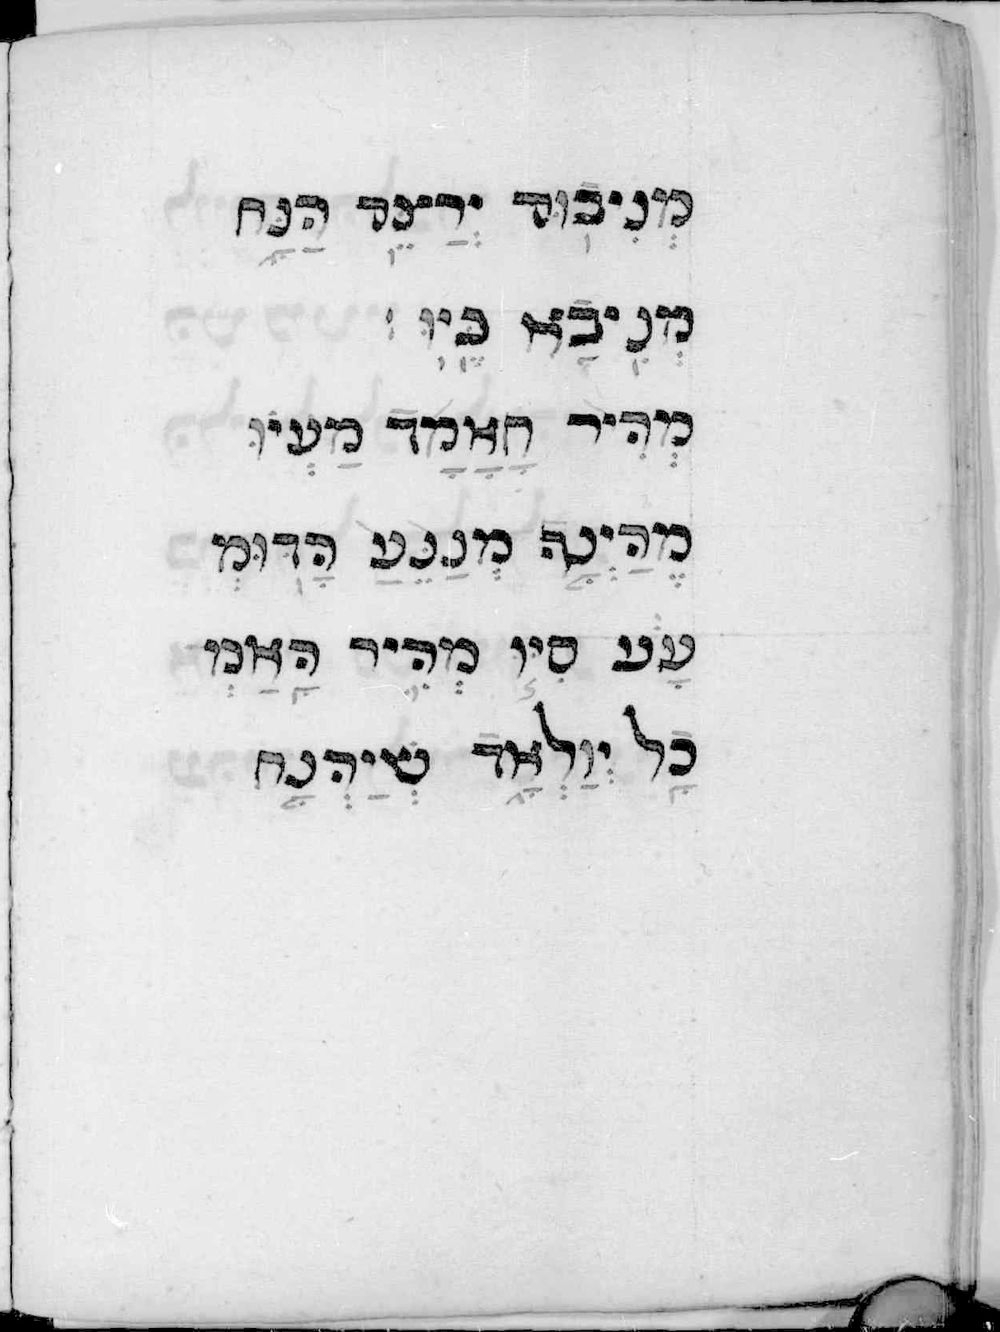 מְנִיבוּד יְרַצֵד הַנָּח
מְנִיבָא כֵּיוּ
מְהִיר חָאָמָד מַעְיוּ
מְהַיְטָה מְנַגֵעַ הָדוּמְ
עָע סִיוּ מְהִיר הָאַמְ
כָל יְוַלְאָד שְׁיַהְנָח